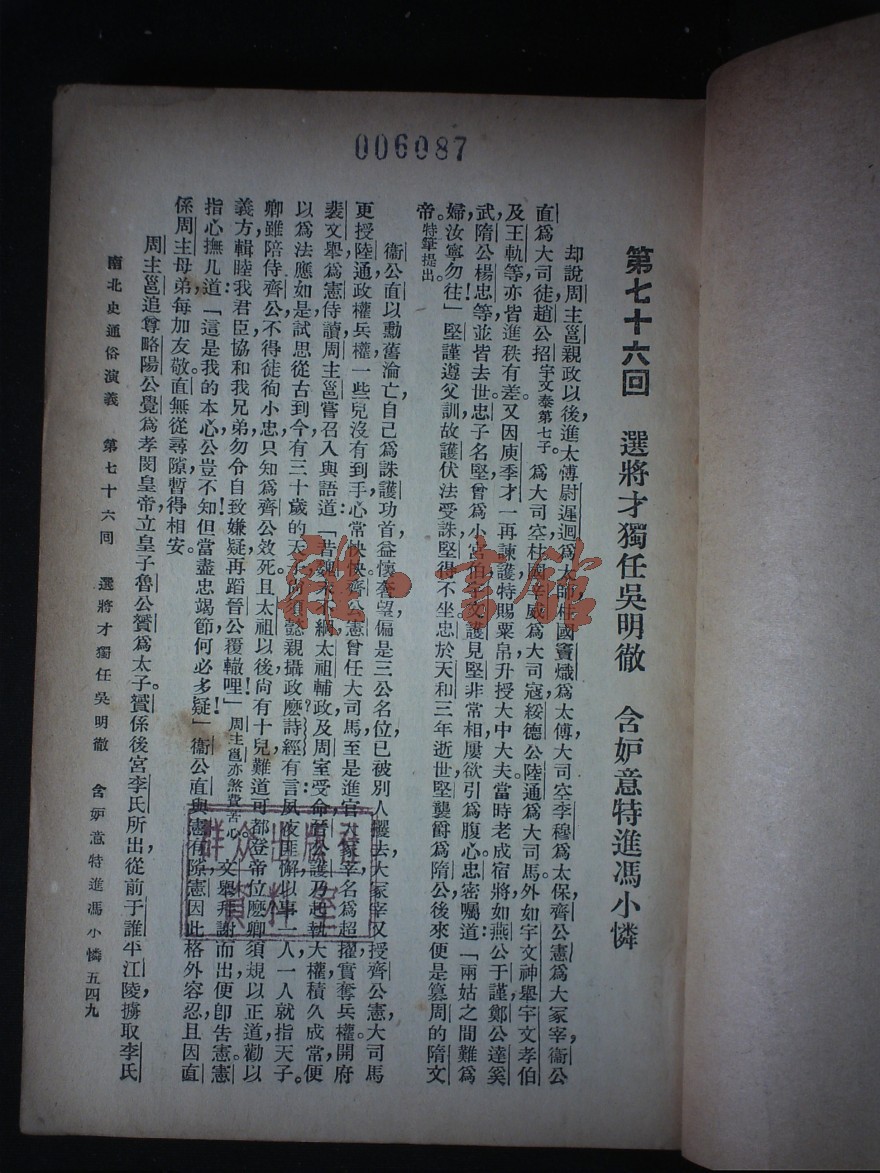 006087
第七十六回　選將才獨任吳明徹　含妒意特進馮小憐
却說周主邕親政以後，進太傅尉遲迥爲太師，柱國竇熾爲太傅，大司空李穆爲太保，齊公憲爲大冢宰，衞公
直爲大司徒，趙公招宇文泰第七子。爲大司空，柱國辛威爲大司寇，綏德公陸通爲大司馬。外如宇文神舉宇文孝伯
及王軌等，亦皆進秩有差。又因庾季才一再諫護，特賜粟帛，升授大中大夫。當時老成宿將，如燕公于謹，鄭公達奚
武，隋公楊忠等，並皆去世。忠子名堅，曾爲小宮伯，宇文護見堅非常相，屢欲引爲腹心。忠密囑道：「兩姑之間難爲
婦，汝寧勿往！」堅謹遵父訓，故護伏法受誅，堅得不坐。忠於天和三年逝世，堅襲爵爲隋公，後來便是篡周的隋文
帝。特筆提出。
衞公直以勳舊淪亡，自己爲誅護功首，益懷奢望，偏是三公名位，已被別人攫去，大冢宰又授齊公憲，大司馬
更授陸通，政權兵權，一些兒沒有到手，心常怏怏。齊公憲曾任大司馬，至是進官大冢宰，名爲超擢，實奪兵權。開府
裴文舉爲憲侍讀，周主邕嘗召入與語道：「昔魏末不綱，太祖輔政，及周室受命，晉公護乃起執大權，積久成常，便
以爲法應如是。試思從古到今，有三十歲的天子，尚須懿親攝政麼？詩經有言：夙夜匪懈，以事一人，一人就指天子。
卿雖陪侍齊公，不得徒徇小忠，只知爲齊公效死，且太祖以後，尚有十兒，難道可都登帝位麼？卿須規以正道，勸以
義方，輯睦我君臣，協和我兄弟，勿令自致嫌疑，再蹈晉公覆轍哩！」周主邕亦煞費苦心。文舉拜謝而出，便卽告憲。憲
指心撫几道：「這是我的本心，公豈不知！但當盡忠竭節，何必多疑！」衞公直與憲有隙，憲因此格外容忍，且因直
係周主母弟，每加友敬，直無從尋隙，暫得相安。
周主邕追尊略陽公覺爲孝閔皇帝，立皇子魯公贇爲太子。贇係後宮李氏所出，從前于謹平江陵，擄取李氏
南北史通俗演義　第七十六回　選將才獨任吳明徹　含妒意特進馮小憐　五四九
群衆出版社
資料室
雜·書館